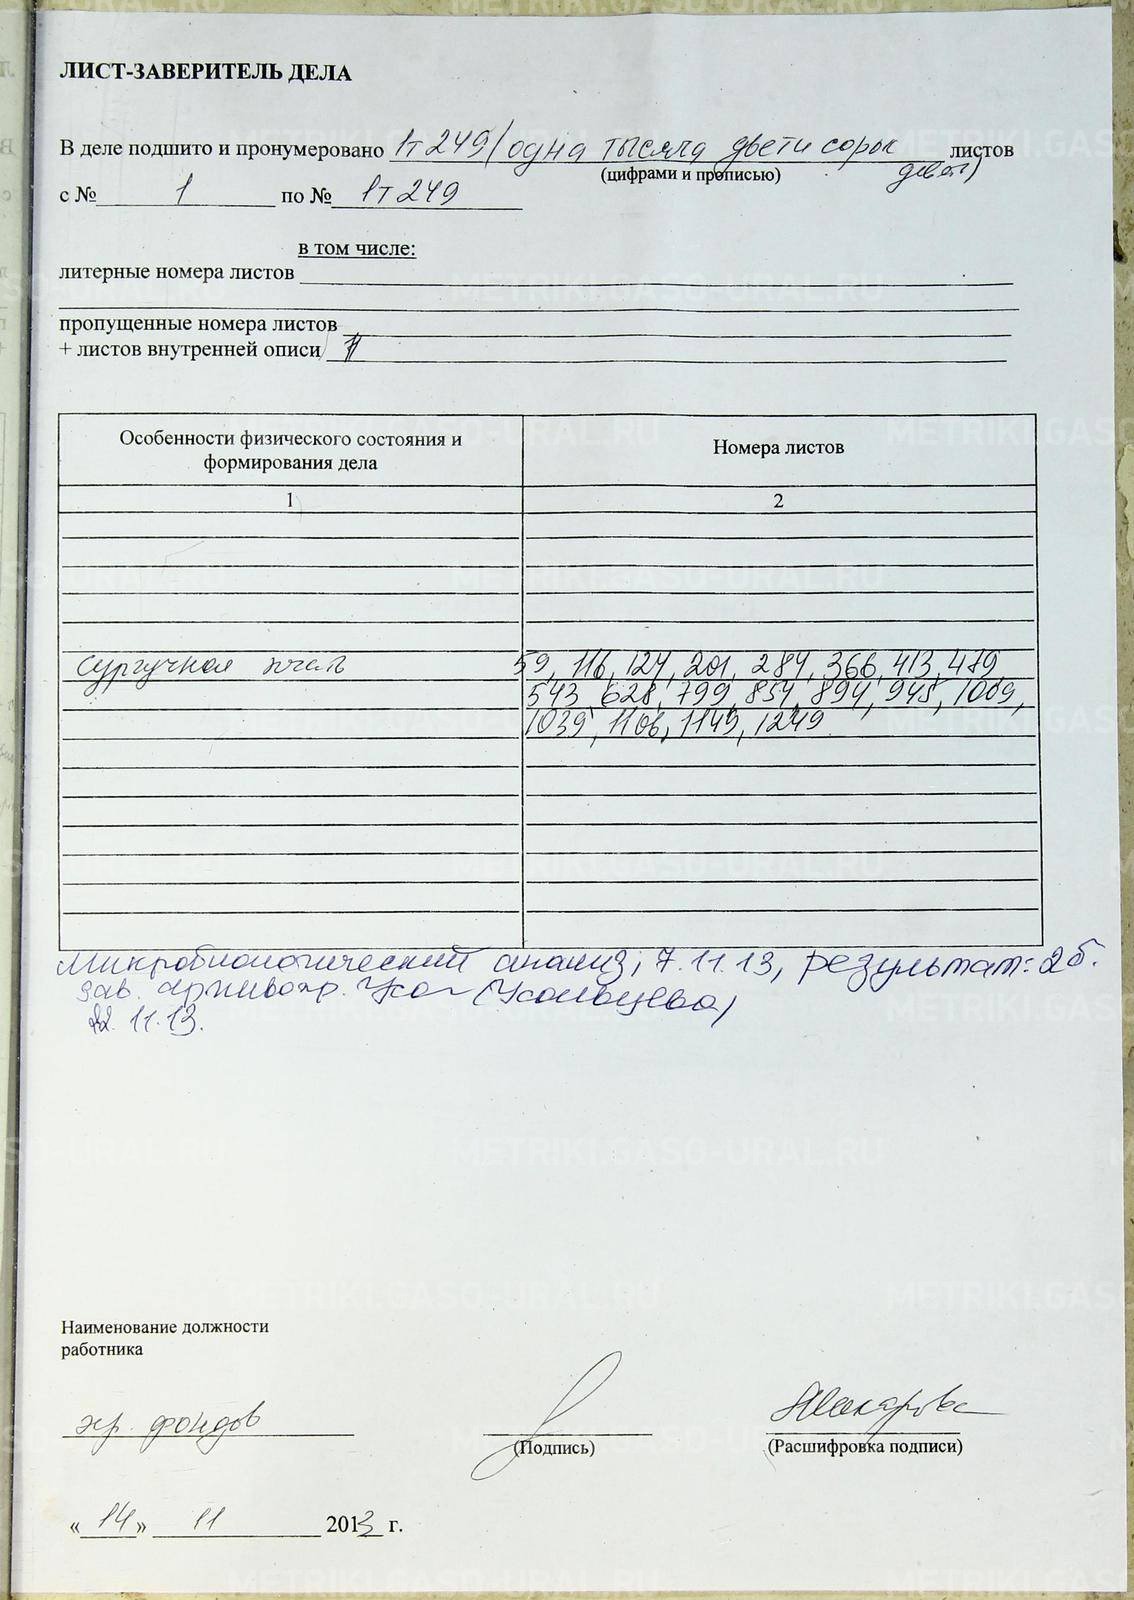 ЛИСТ-ЗАВЕРИТЕЛЬ ДЕЛА
В деле подшито и пронумеровано 1т249 (одна тысяча двести сорок листов
(цифрами и прописью) девять)
с № 1 по № 1т249
в том числе:
литерные номера листов
пропущенные номера листов
+ листов внутренней описи
Особенности физического состояния и формирования дела
Номера листов
1 2
сургучная печать 59, 116, 127, 201, 284, 366, 413, 479
543, 628, 799, 854, 894, 945, 1009,
1039, 1106, 1149, 1249
Микробиологический анализ, 7.11.13, результат: 2б.
зав. архивохр. (Усольцева)
22. 11.13.
Наименование должности
работника
хр. фондов Макарова
(Подпись) (Расшифровка подписи)
« 14 » 11 2013 г.
METRIKI.GASO-URAL.RU